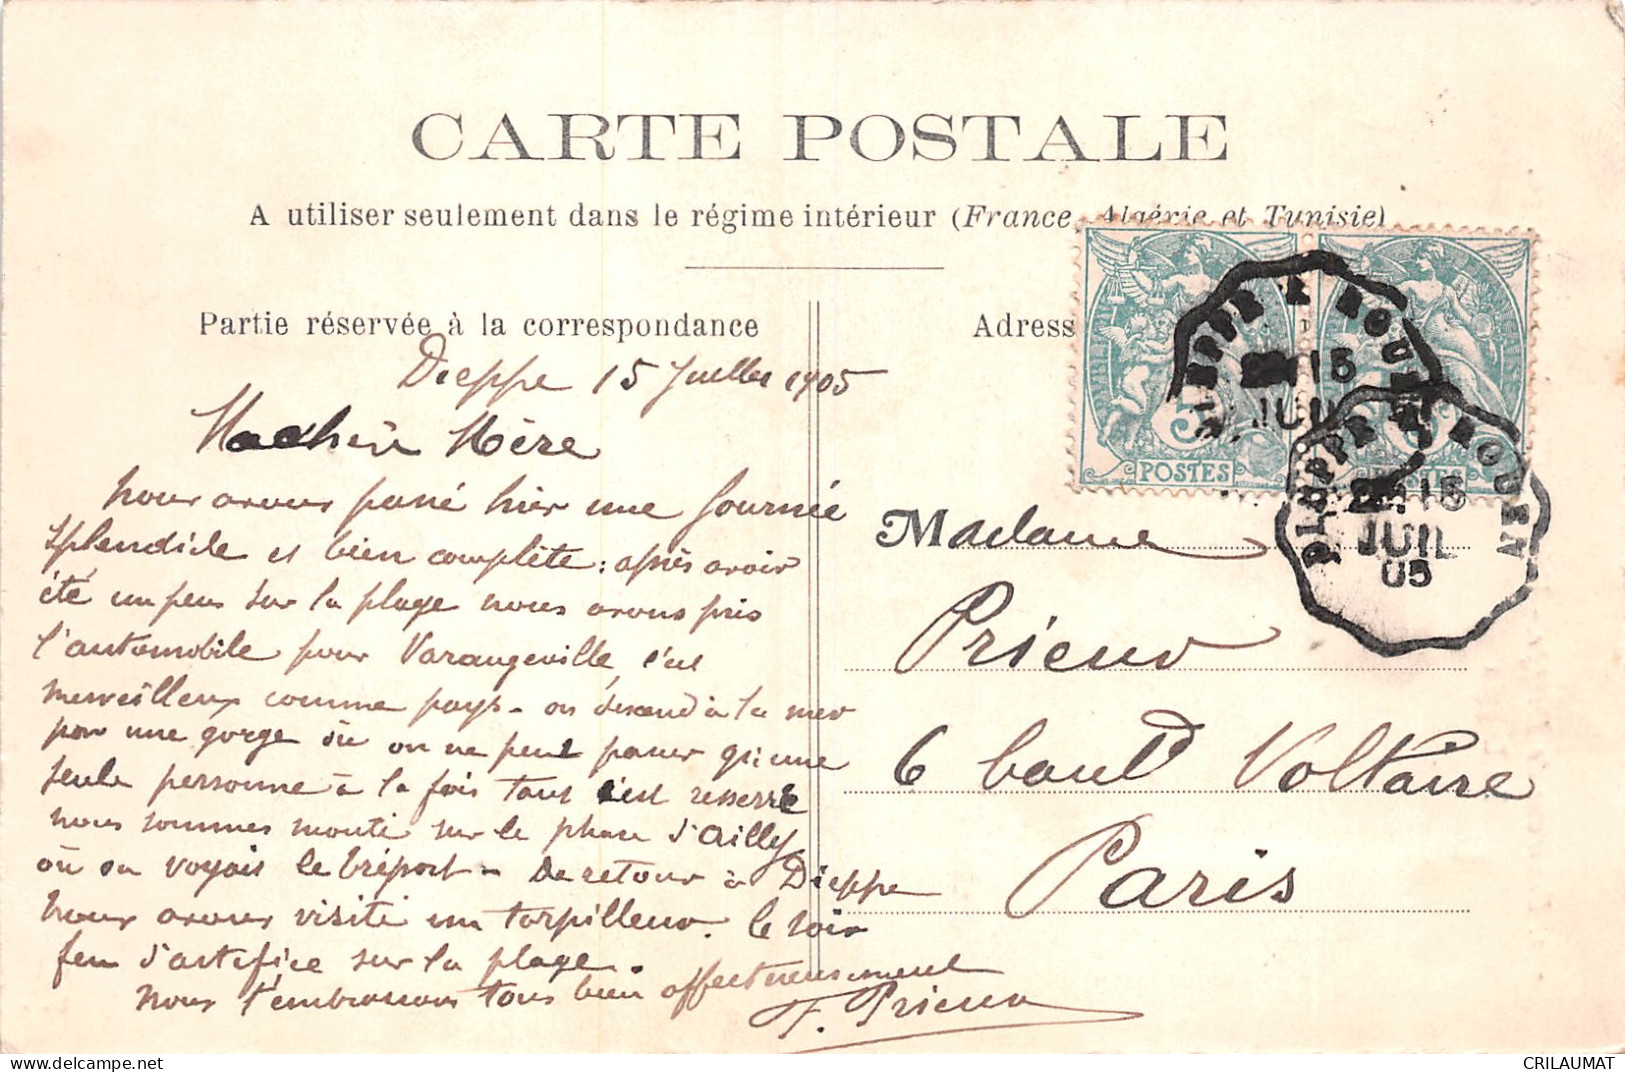 CARTE POSTALE
A utiliser seulement dans le régime intérieur (France, Algérie et Tunisie)
Partie réservée à la correspondance
Adress
Dieppe 15 Juillet 1905
Ma chère Mère
nous avons passé hier une journée
splendide et bien complète : après avoir
été un peu sur la plage nous avons pris
l'automobile pour Varangeville, c'est
merveilleux comme pays - on descend à la mer
par une gorge où on ne peut passer qu'une
seule personne à la fois tant c'est resserré
nous sommes monté sur le phare d'Ailly
où on voyait le Tréport - De retour à Dieppe
nous avons visité un torpilleur. le soir
feu d'artifice sur la plage.
nous t'embrassons tous bien affectueusement
F. Prieur
POSTES
POSTES
5
DIEPPE A ROUEN
15
JUIL
DIEPPE A ROUEN
15
JUIL
05
Madame
Prieur
6 boulᵈ Voltaire
Paris
www.delcampe.net
CRILAUMAT